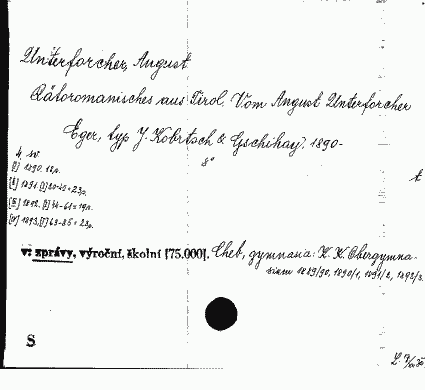 Unterforcher, August
Rätoromanisches aus Tirol. Vom August Unterforcher
Eger, typ J. Kobrtsch & Gschihay. 1890-
8°
4 sv
[I] 1890. 12p.
[II] 1891. [I] 20-42 = 23p.
[III] 1892. [I] 44-61 = 19p.
[IV] 1893. [I] 63-85 = 23p.
t
v: zprávy, výroční, školní [75.000]. Cheb, gymnasia: K. K. Obergymna-
sium 1889/90, 1890/1, 1891/2, 1892/3.
S